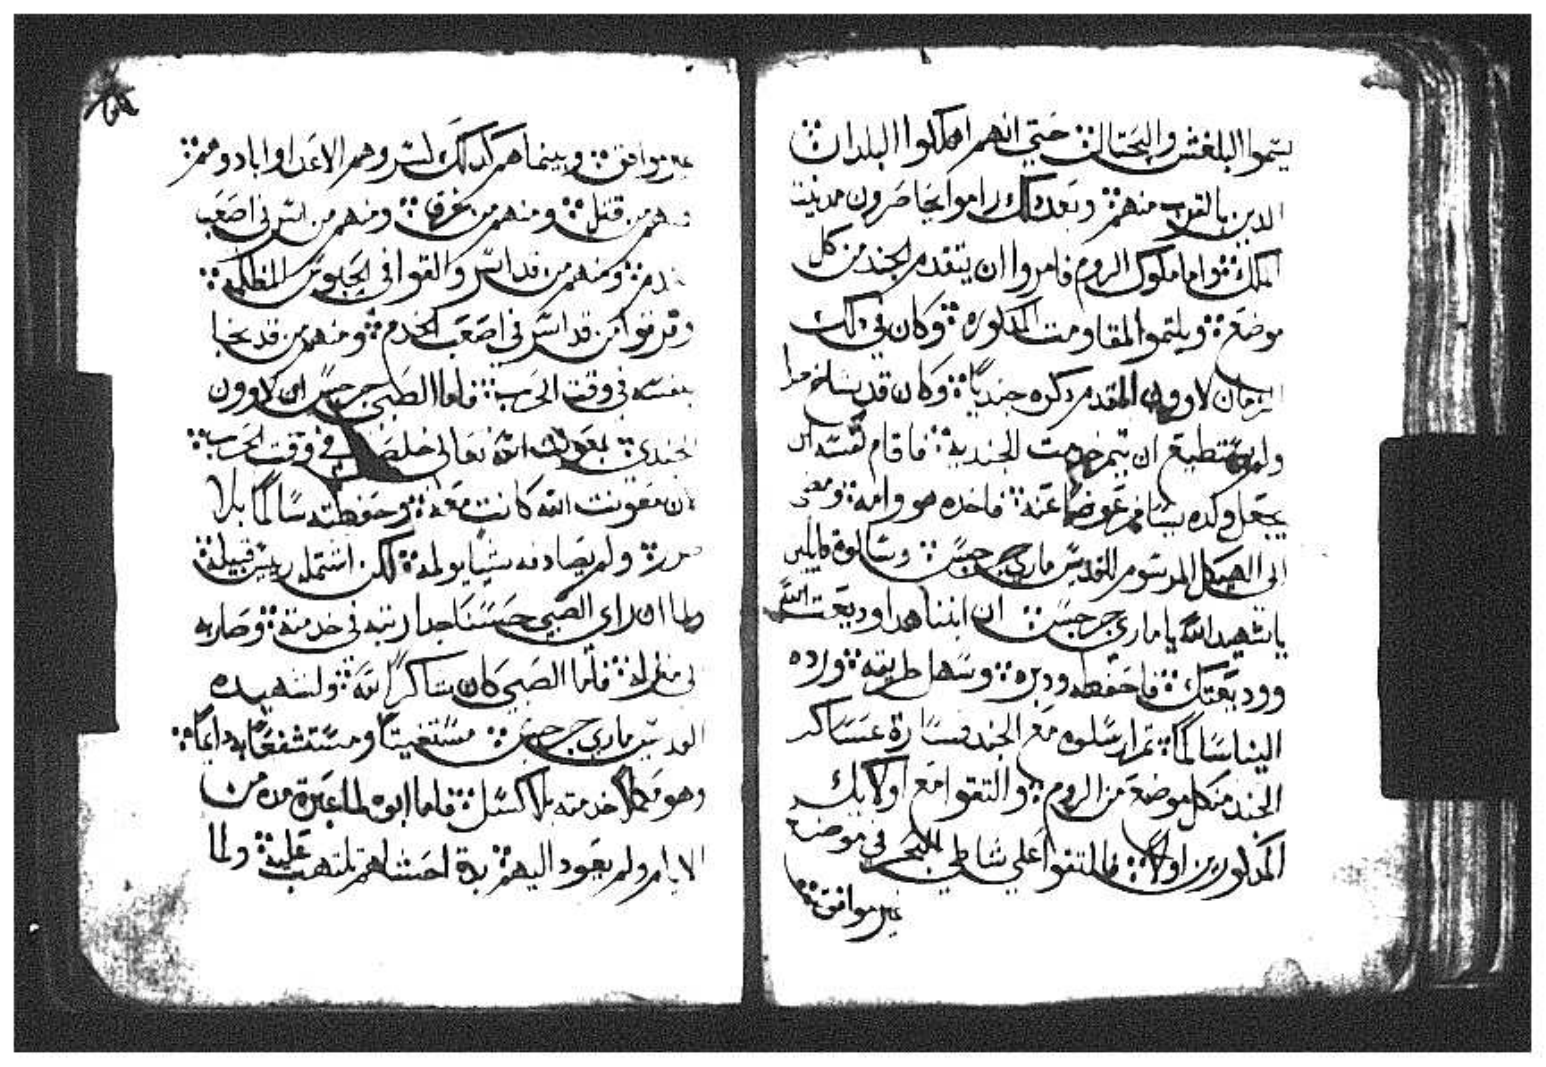 يسموا البلغش والبجتالت܀ حتي انهم امتلكوا البلدان܀
الدين بالقرب منهم܀ وبعد دلك راموا يحاصرون مدينت
الملك܀ واما ملوك الروم فامروا ان يتقدم الجند من كل
موضع܀ ويلتموا لمقاومت المدكوره܀ وكان في دلك
الزمان لاوون المقدم دكره جنديًا܀ وكان قد شاخ جدا
ولم يستطيع ان يتم خدمت الجندية܀ فاقام لنفسه ان
يجعل ولده يسافر عوضًا عنه܀ فاخده هو وامه܀ ومضي
الي الهيكل المرسوم للقديس ماري جرجس܀ وسالوه قايلين
ياشهيد الله يا ماري جرجس܀ ان ابننا هدا وديعت الله
ووديعتك܀ فاحفظه ودبره܀ وسهل طريقه܀ ورده
الينا سالمًا܀ تم ارسلوه مع الجند وسارة عساكر
الجند من كل موضع من الروم܀ والتقوا مع اولايك
المدكورين اولًا܀ فالتقوا علي شاطي البحر في موضع
غير موافق܀
غير موافق܀ وبينما هم كدلك وهم الاعدا وابادوهم܀
منهم من قتل܀ ومنهم من غرق܀ ومنهم من اسر في اصعب
خدم܀ ومنهم من قد اسر والقوا في الحبوس المظلمة܀
وفرقوا من قد اسر في اصعب الخدم܀ ومنهم من قد نجا
بنفسه في وقت الحرب܀ فاما الصبي جرجس ابن لاوون
الجندي܀ بمعونت الله تعالي خلص في وقت الحرب܀
لان معونت الله كانت معه܀ وحفظته سالمًا بلا
ضرر܀ ولم يصادفه شيًا يولمه܀ لكن استمله رييس قبيلة܀
ولما ان راي الصبي حسنًا جدا رتبه في خدمته܀ وصار به
في منزله܀ فاما الصبي كان شاكرًا لله܀ ولشهيده
القديس ماري جرجس܀ مستغيتًا ومستشفعًا به دايمًا܀
وهو مكملا خدمته بلا كسل܀ فاما ابوه لما عبرة مده من
الايام ولم يعود اليهم܀ بدة احشاهم تلتهب عليه܀ ولما